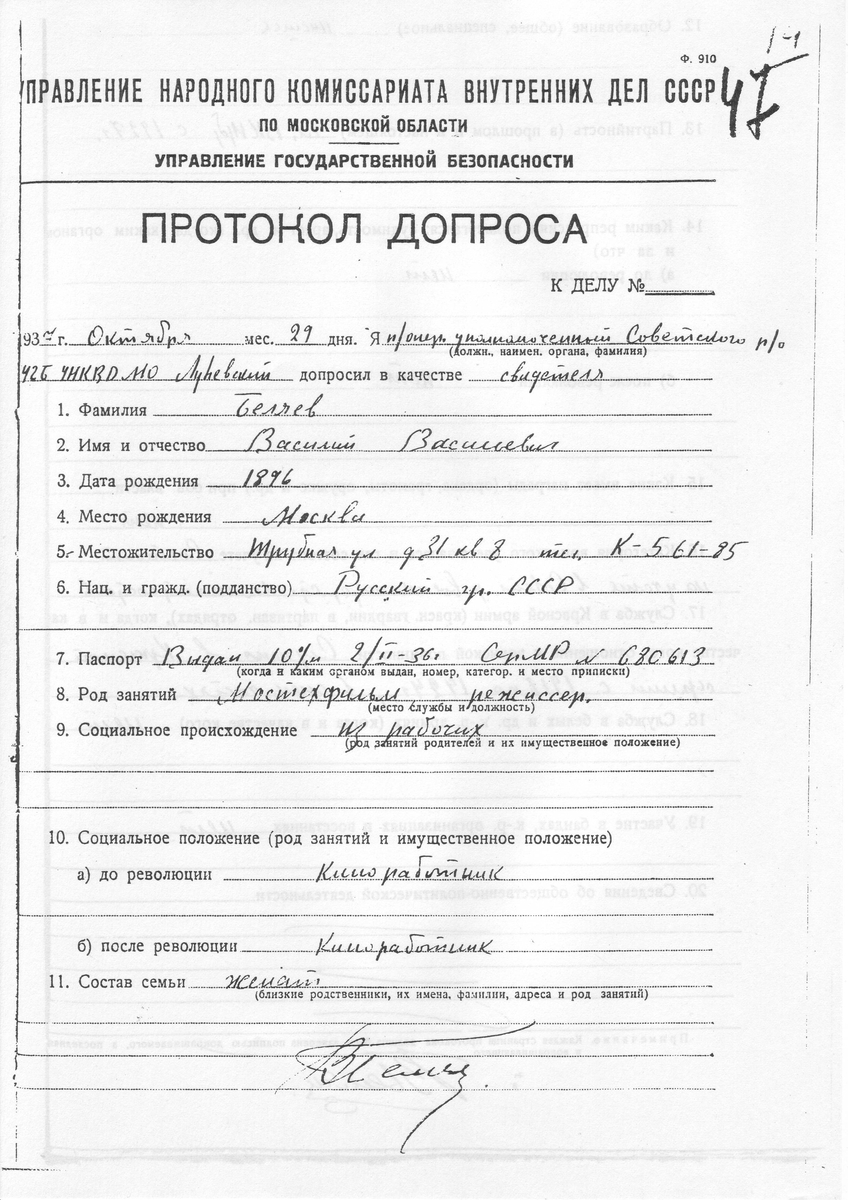 Ф. 910
УПРАВЛЕНИЕ НАРОДНОГО КОМИССАРИАТА ВНУТРЕННИХ ДЕЛ СССР
47
ПО МОСКОВСКОЙ ОБЛАСТИ
УПРАВЛЕНИЕ ГОСУДАРСТВЕННОЙ БЕЗОПАСНОСТИ
ПРОТОКОЛ ДОПРОСА
К ДЕЛУ №
937 г. Октября мес. 29 дня. Я п/опер. уполномоченный Советского р/о
(должн., наимен. органа, фамилия)
УГБ УНКВД МО допросил в качестве свидетеля
1. Фамилия Беляев
2. Имя и отчество Василий Васильевич
3. Дата рождения 1896
4. Место рождения Москва
5. Местожительство Трубная ул д 31 кв 8 тел. К-5 61-85
6. Нац. и гражд. (подданство) Русский гр. СССР
7. Паспорт Выдан 10 /м 2/II-36г. № 680613
(когда и каким органом выдан, номер, категор. и место приписки)
8. Род занятий Мостехфильм режиссер.
(место службы и должность)
9. Социальное происхождение из рабочих
(род занятий родителей и их имущественное положение)
10. Социальное положение (род занятий и имущественное положение)
а) до революции Киноработник
б) после революции Киноработник
11. Состав семьи женат
(близкие родственники, их имена, фамилии, адреса и род занятий)